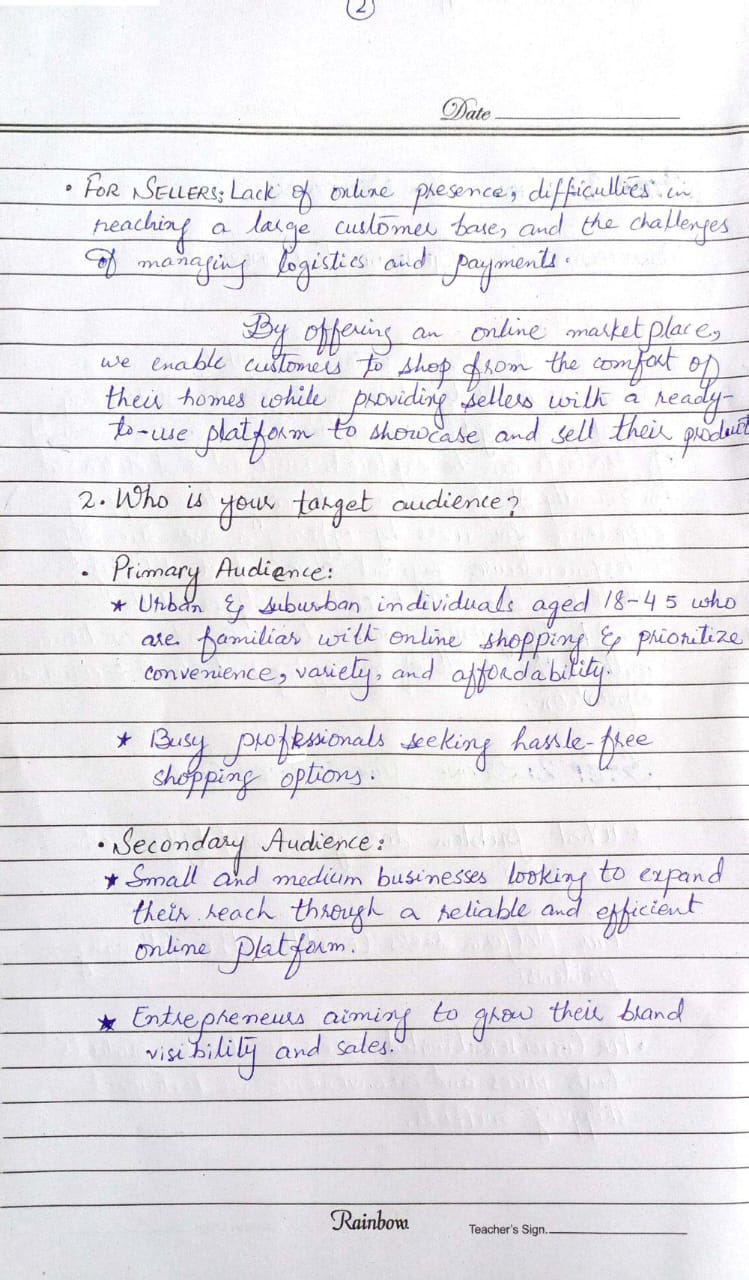 2
Date
• FOR SELLERS: Lack of online presence, difficulties in
reaching a large customer base, and the challenges
of managing logistics and payments.
By offering an online marketplace,
we enable customers to shop from the comfort of
their homes while providing sellers with a ready-
to-use platform to showcase and sell their product
2. Who is your target audience?
• Primary Audience:
★ Urban & suburban individuals aged 18-45 who
are familiar with online shopping & prioritize
convenience, variety, and affordability.
★ Busy professionals seeking hassle-free
shopping options.
• Secondary Audience:
★ Small and medium businesses looking to expand
their reach through a reliable and efficient
online platform.
★ Entrepreneurs aiming to grow their brand
visibility and sales.
Rainbow
Teacher's Sign.